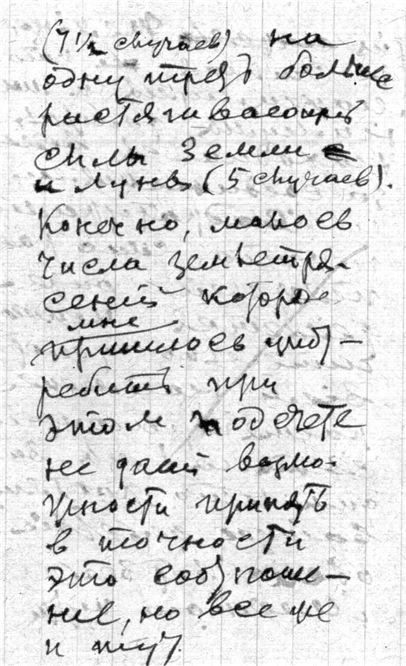 (7½ случаев) на
одну треть больше
растягивающих
силы Земли
и Луны (5 случаев).
Конечно, малое
числа землетря-
сений которое
мне
пришлось упот-
ребить при
этом подсчете
не дает возмо-
жности принять
в точности
это соотноше-
ние, но все же
и тут